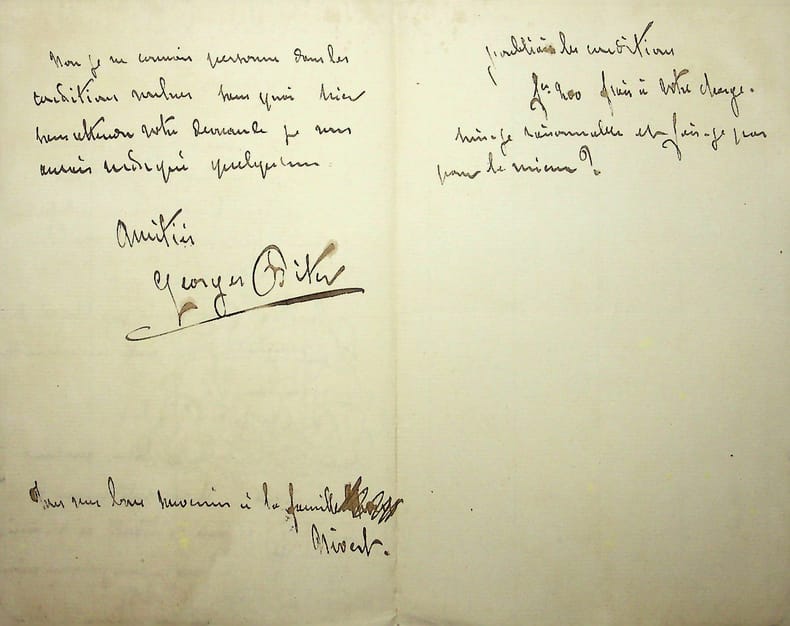 Non je ne connais personne dans les
conditions voulues sans quoi bien
sans attendre votre demande je vous
aurais indiqué quelqu'un.
Amitiés
Georges
Tous mes bons souvenirs à la famille
Nivert.
j'oubliais les conditions
frs 200 frais à votre charge.
suis-je raisonnable et fais-je pas
pour le mieux?